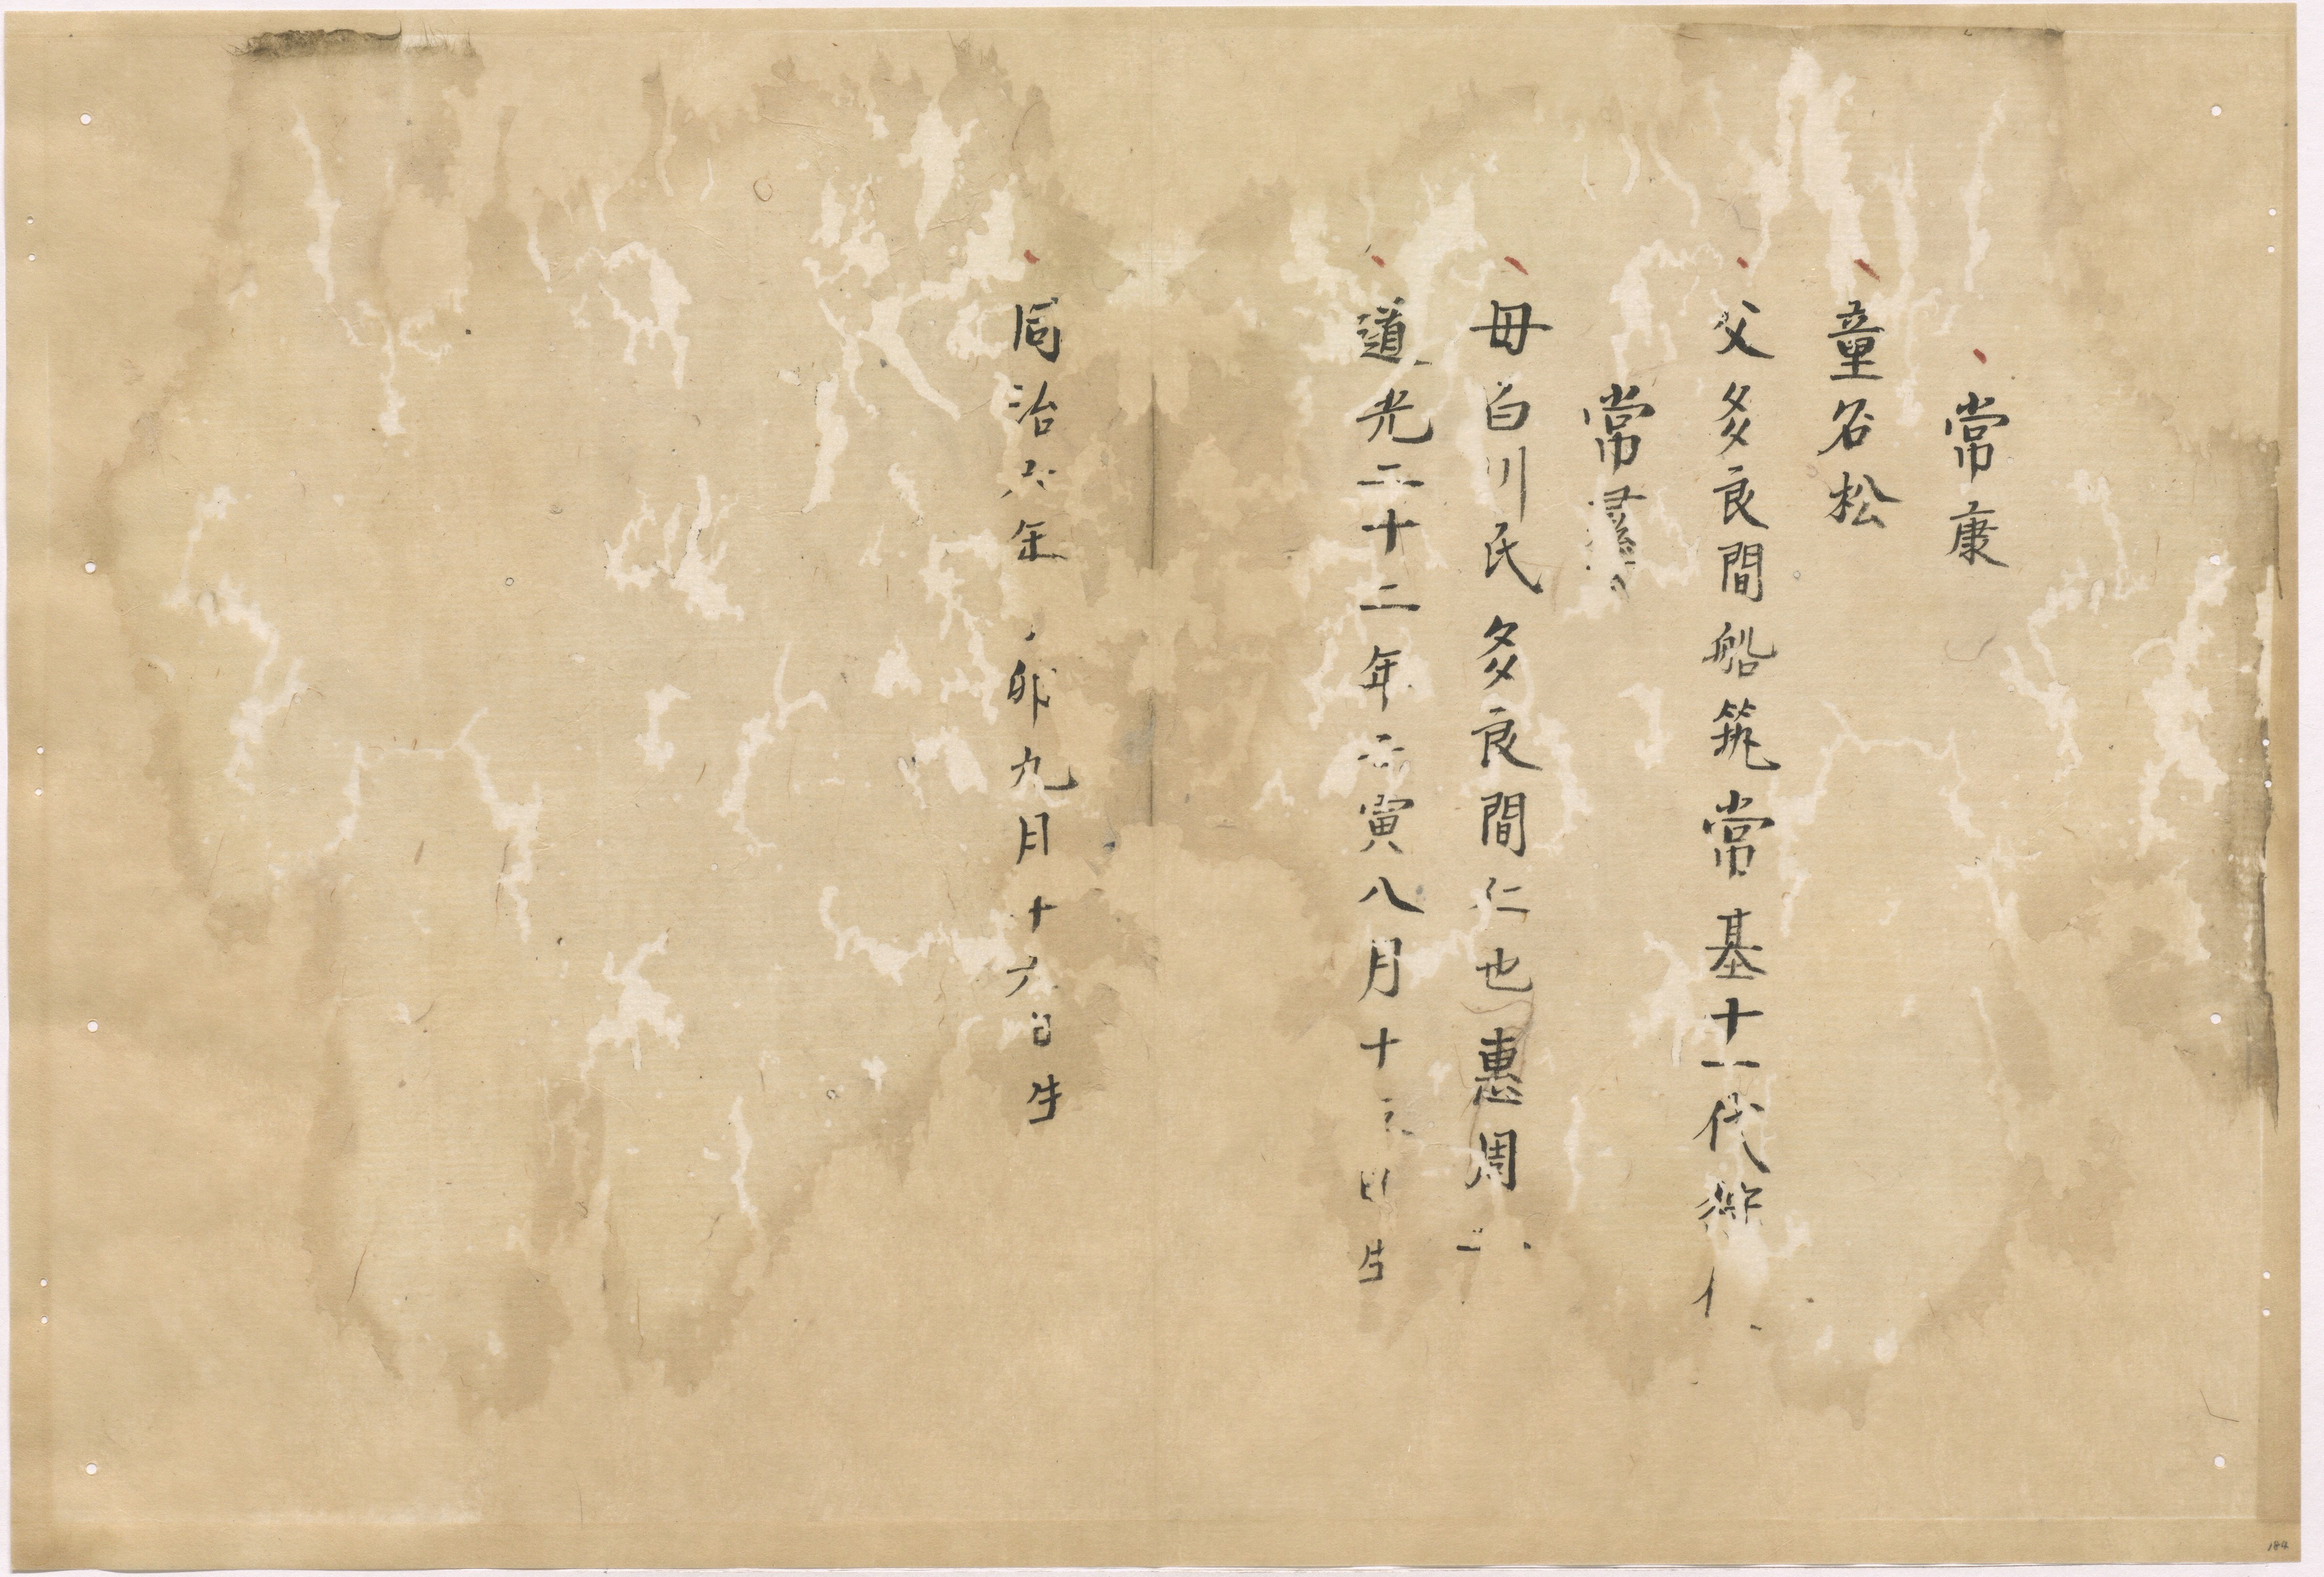 常康
童名松
父多良間船筑常基十一代
常
母白川氏多良間仁也惠周
道光二十二年壬寅八月十 日生
同治六年丁卯九月十六日生
184